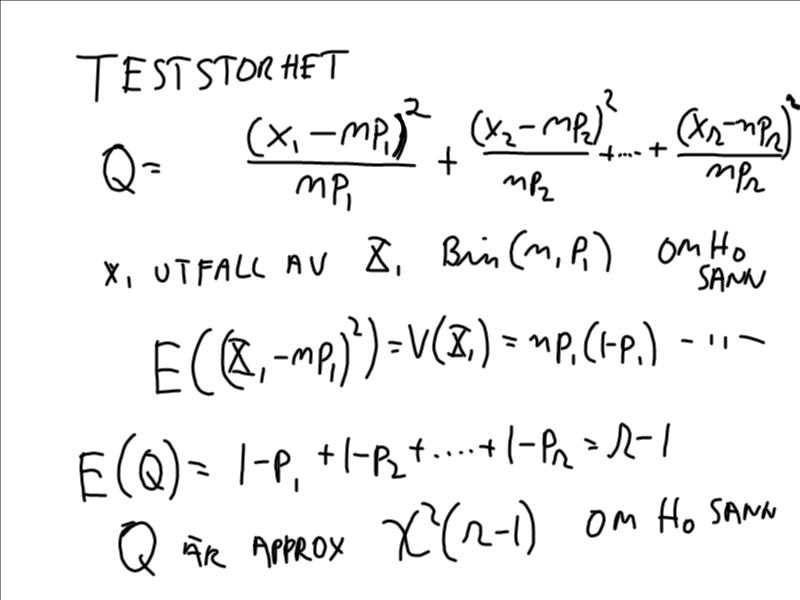 TESTSTORHET
Q = (x₁ - np₁)²/np₁ + (x₂ - np₂)²/np₂ + .... + (xᵣ - npᵣ)²/npᵣ
x₁ UTFALL AV X₁ Bin(n, p₁) OM H₀ SANN
E((X₁ - np₁)²) = V(X₁) = np₁(1-p₁) - " -
E(Q) = 1-p₁ + 1-p₂ + .... + 1-pᵣ = r-1
Q ÄR APPROX χ²(r-1) OM H₀ SANN